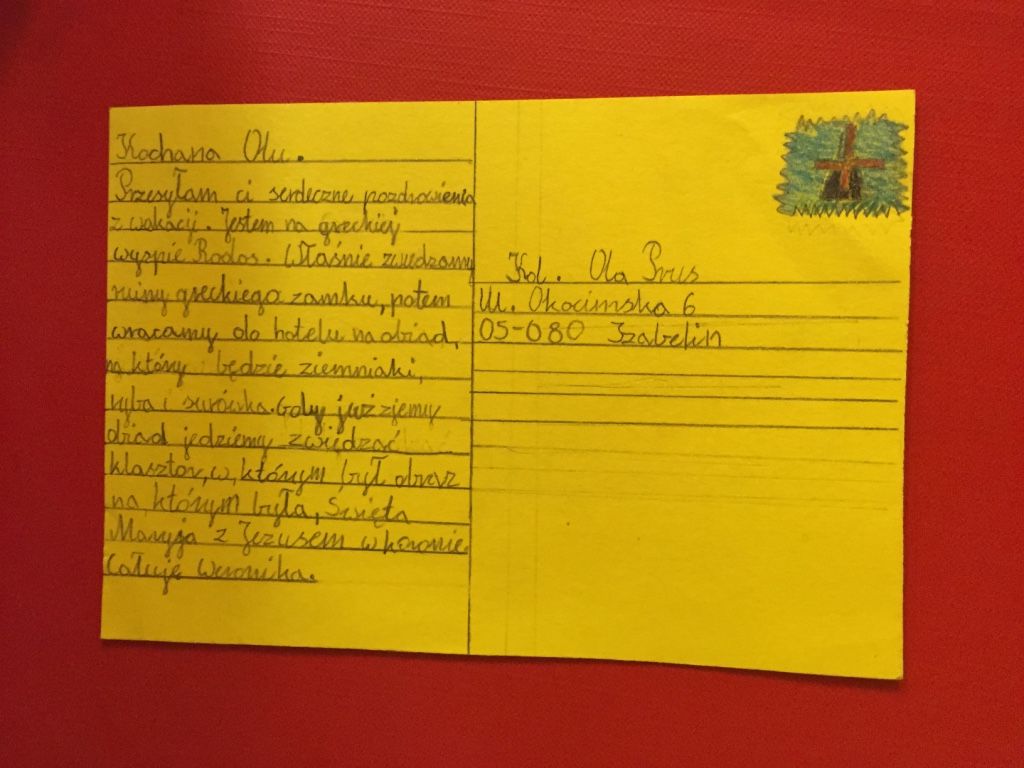 Kochana Olu.
Przesyłam ci serdeczne pozdrowienia
z wakacji. Jestem na greckiej
wyspie Rodos. Właśnie zwiedzamy
ruiny greckiego zamku, potem
wracamy do hotelu na obiad,
na który będzie ziemniaki,
ryba i surówka. Gdy już zjemy
obiad jedziemy zwiędzać
klasztor, w, którym był obraz
na, którym była, Święta
Maryja z Jezusem w koronie.
Całuję Weronika.
Kol. Ola Prus
Ul. Okocimska 6
05-080 Izabelin